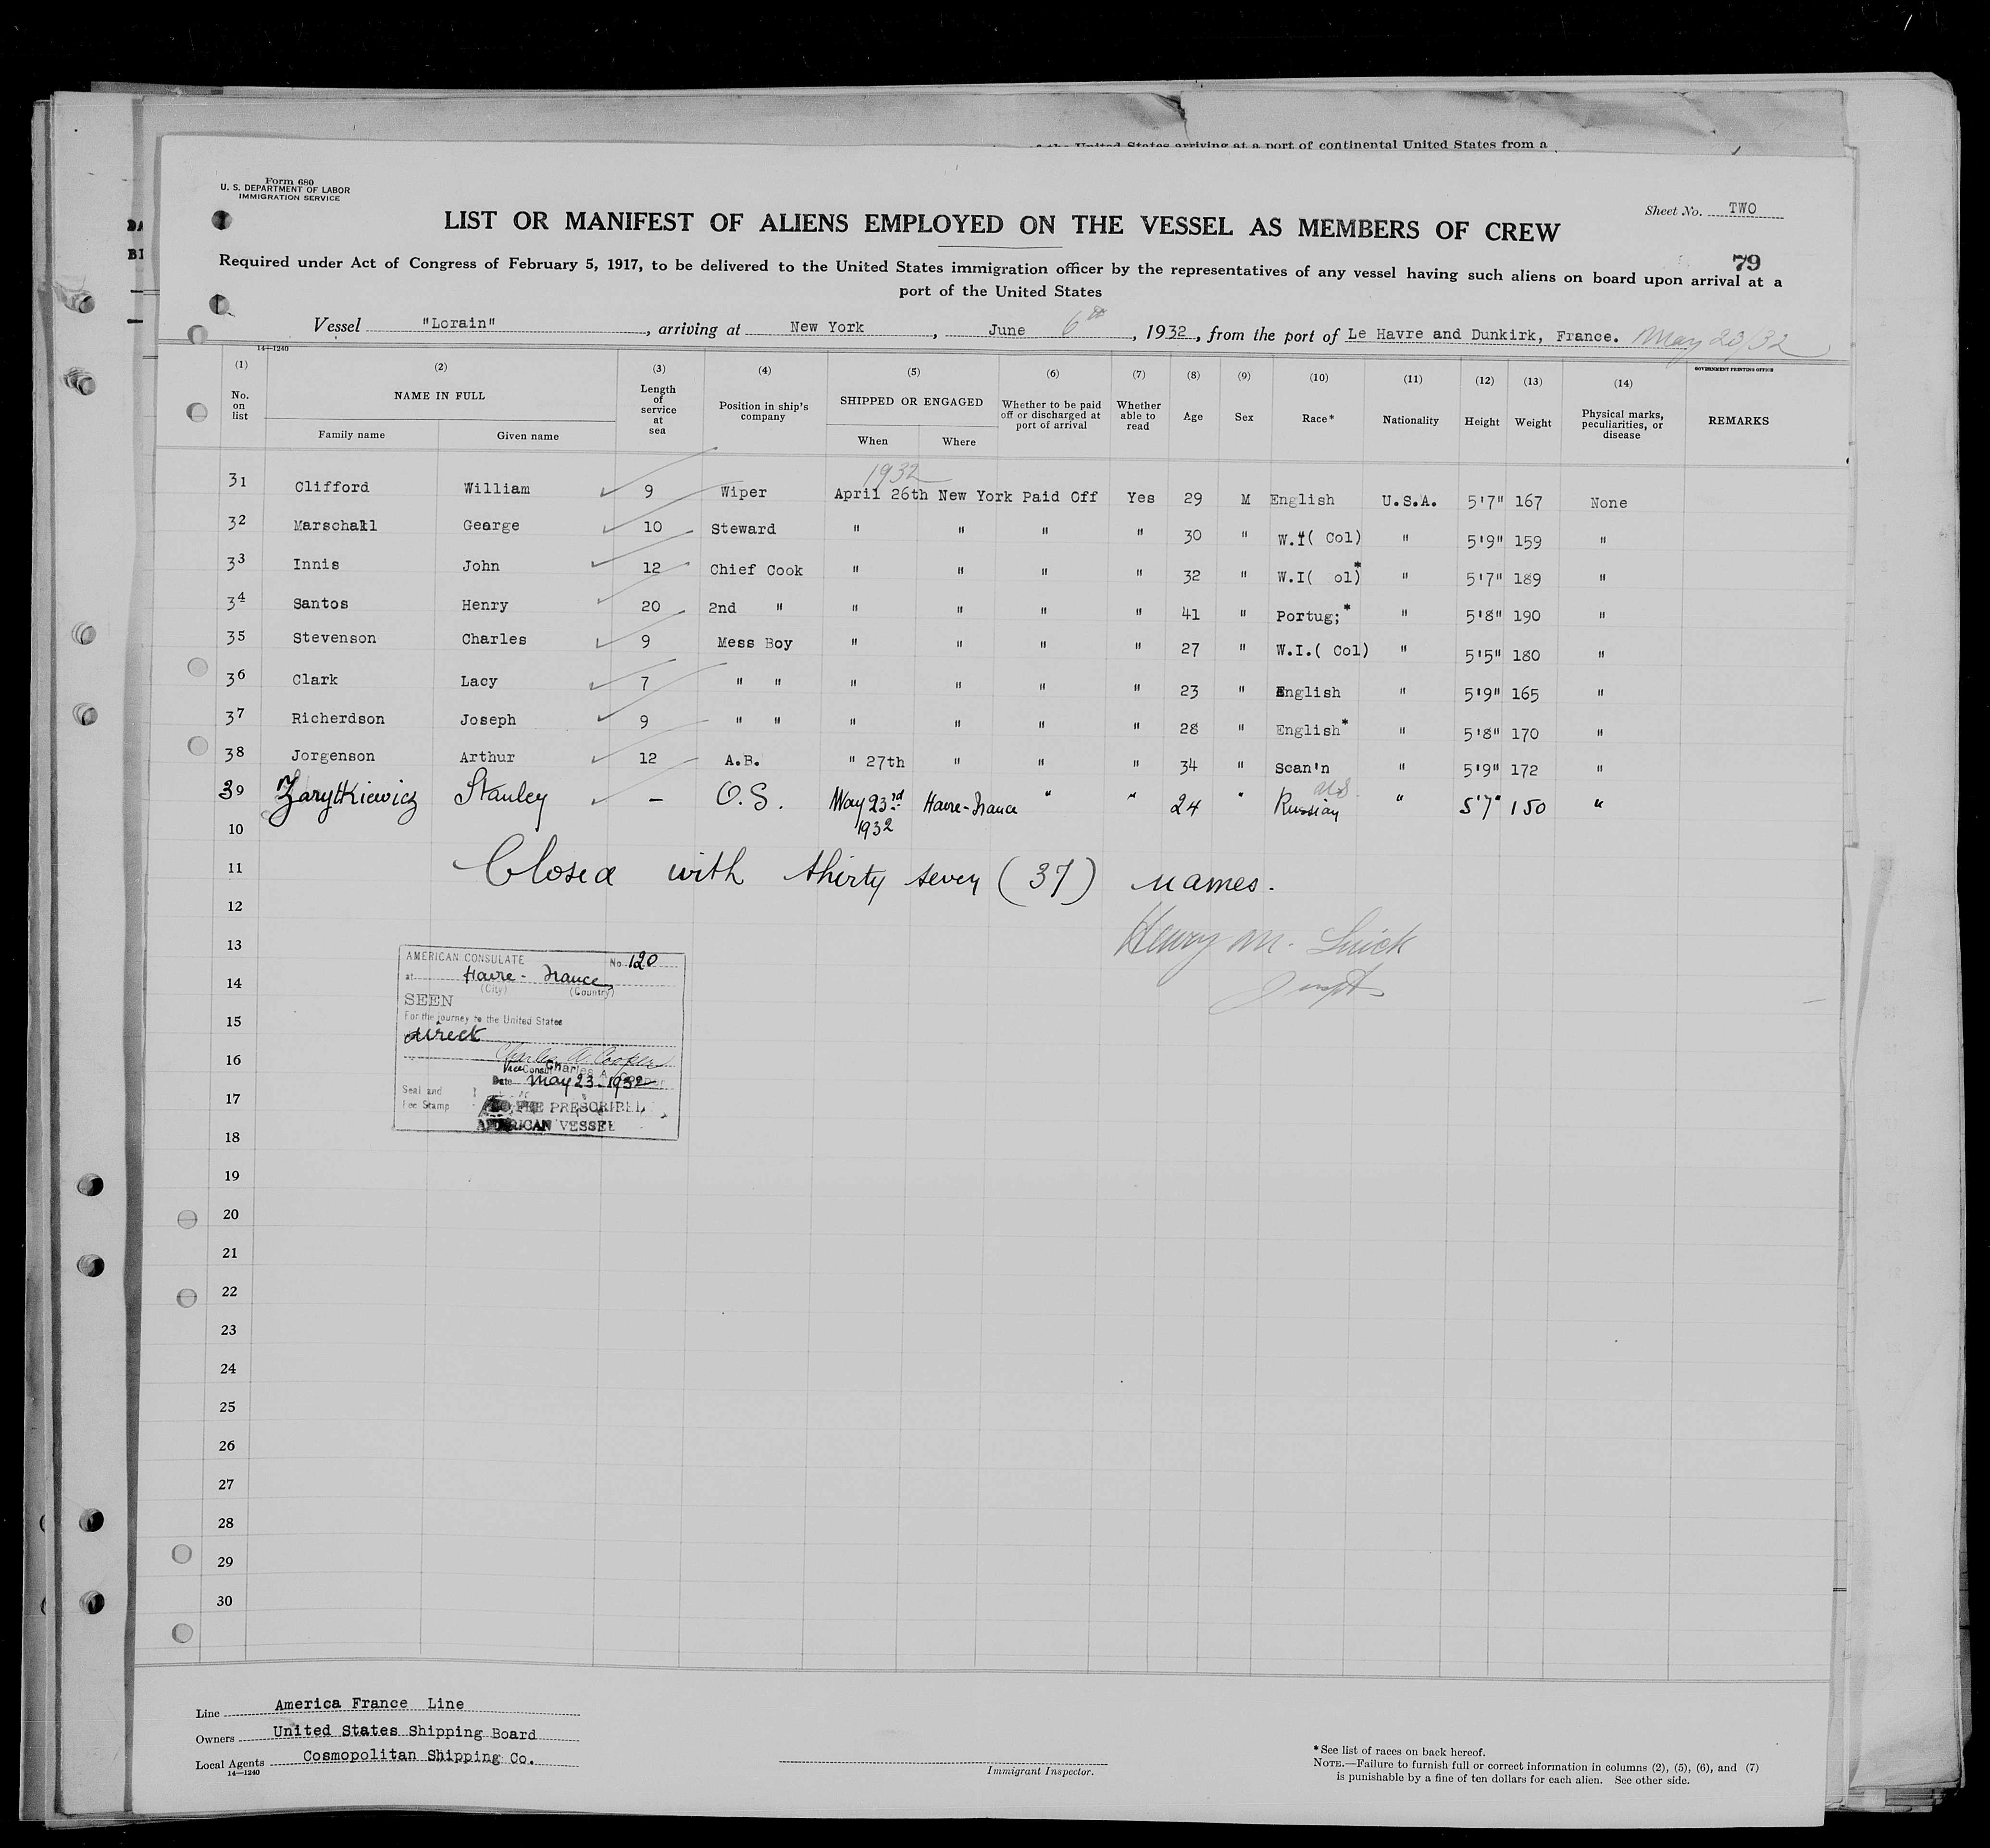 of the United States arriving at a port of continental United States from a
Form 680
U. S. DEPARTMENT OF LABOR
IMMIGRATION SERVICE
Sheet No. TWO
LIST OR MANIFEST OF ALIENS EMPLOYED ON THE VESSEL AS MEMBERS OF CREW
79
Required under Act of Congress of February 5, 1917, to be delivered to the United States immigration officer by the representatives of any vessel having such aliens on board upon arrival at a
port of the United States
Vessel "Lorain", arriving at New York, June 6th, 1932, from the port of Le Havre and Dunkirk, France. May 23/32
14—1240
GOVERNMENT PRINTING OFFICE
(1) (2) (3) (4) (5) (6) (7) (8) (9) (10) (11) (12) (13) (14)
No. on list NAME IN FULL Length of service at sea Position in ship's company SHIPPED OR ENGAGED Whether to be paid off or discharged at port of arrival Whether able to read Age Sex Race* Nationality Height Weight Physical marks, peculiarities, or disease REMARKS
Family name Given name When Where
1932
31 Clifford William 9 Wiper April 26th New York Paid Off Yes 29 M English U.S.A. 5'7" 167 None
32 Marschall George 10 Steward " " " " 30 " W.I( Col) " 5'9" 159 "
33 Innis John 12 Chief Cook " " " " 32 " W.I( ol)* " 5'7" 189 "
34 Santos Henry 20 2nd " " " " " 41 " Portug;* " 5'8" 190 "
35 Stevenson Charles 9 Mess Boy " " " " 27 " W.I.( Col) " 5'5" 180 "
36 Clark Lacy 7 " " " " " " 23 " English " 5'9" 165 "
37 Richerdson Joseph 9 " " " " " " 28 " English* " 5'8" 170 "
38 Jorgenson Arthur 12 A.B. " 27th " " " 34 " Scan'n " 5'9" 172 "
39 Zarytkiewicz Stanley - O.S. May 23rd 1932 Havre-France " " 24 " Russian " 5'7" 150 "
10
11
Closed with thirty seven (37) names.
12
13
Henry M.
14
15
16
17
18
19
20
21
22
23
24
25
26
27
28
29
30
AMERICAN CONSULATE No. 120
at Havre - France
(City) (Country)
SEEN
For the journey to the United States
direct
Charles A. Cooper
Vice Consul Charles A. Cooper
Date May 23 - 1932
Seal and
Fee Stamp
NO FEE PRESCRIBED
AMERICAN VESSEL
Line America France Line
Owners United States Shipping Board
Local Agents Cosmopolitan Shipping Co.
14—1240
Immigrant Inspector.
*See list of races on back hereof.
NOTE.—Failure to furnish full or correct information in columns (2), (5), (6), and (7)
is punishable by a fine of ten dollars for each alien. See other side.